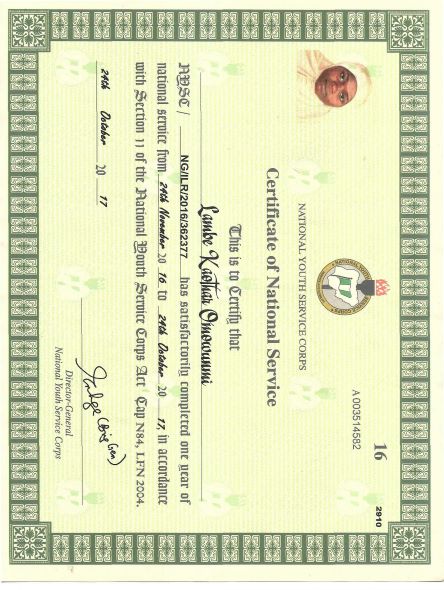 16
2910
A 003514582
NATIONAL YOUTH SERVICE CORPS
Certificate of National Service
This is to Certify that
Lambe Kaothar Omowunmi
NYSC / NG/ILR/2016/362377 has satisfactorily completed one year of
national service from 24th November 20 16 to 24th October 20 17, in accordance
with Section 11 of the National Youth Service Corps Act Cap N84, LFN 2004.
24th October 20 17
Director-General
National Youth Service Corps